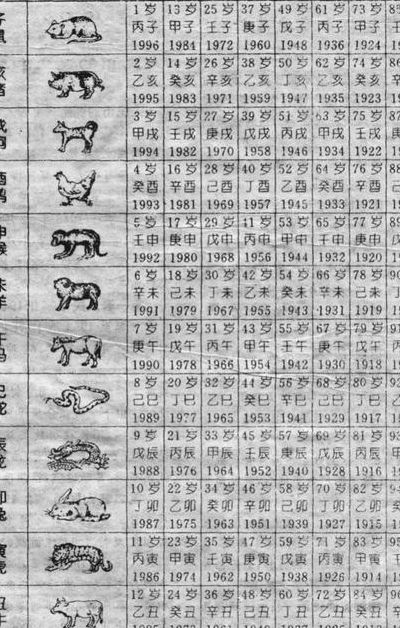 鼠
1岁 13岁 25岁 37岁 49岁 61岁 73岁
丙子 甲子 壬子 庚子 戊子 丙子 甲子
1996 1984 1972 1960 1948 1936 1924
亥
猪
2岁 14岁 26岁 38岁 50岁 62岁 74岁
乙亥 癸亥 辛亥 己亥 丁亥 乙亥 癸亥
1995 1983 1971 1959 1947 1935 1923
戌
狗
3岁 15岁 27岁 39岁 51岁 63岁 75岁
甲戌 壬戌 庚戌 戊戌 丙戌 甲戌 壬戌
1994 1982 1970 1958 1946 1934 1922
酉
鸡
4岁 16岁 28岁 40岁 52岁 64岁 76岁
癸酉 辛酉 己酉 丁酉 乙酉 癸酉 辛酉
1993 1981 1969 1957 1945 1933 1921
申
猴
5岁 17岁 29岁 41岁 53岁 65岁 77岁
壬申 庚申 戊申 丙申 甲申 壬申 庚申
1992 1980 1968 1956 1944 1932 1920
未
羊
6岁 18岁 30岁 42岁 54岁 66岁 78岁
辛未 己未 丁未 乙未 癸未 辛未 己未
1991 1979 1967 1955 1943 1931 1919
午
马
7岁 19岁 31岁 43岁 55岁 67岁 79岁
庚午 戊午 丙午 甲午 壬午 庚午 戊午
1990 1978 1966 1954 1942 1930 1918
巳
蛇
8岁 20岁 32岁 44岁 56岁 68岁 80岁
己巳 丁巳 乙巳 癸巳 辛巳 己巳 丁巳
1989 1977 1965 1953 1941 1929 1917
辰
龙
9岁 21岁 33岁 45岁 57岁 69岁 81岁
戊辰 丙辰 甲辰 壬辰 庚辰 戊辰 丙辰
1988 1976 1964 1952 1940 1928 1916
卯
兔
10岁 22岁 34岁 46岁 58岁 70岁 82岁
丁卯 乙卯 癸卯 辛卯 己卯 丁卯 乙卯
1987 1975 1963 1951 1939 1927 1915
寅
虎
11岁 23岁 35岁 47岁 59岁 71岁 83岁
丙寅 甲寅 壬寅 庚寅 戊寅 丙寅 甲寅
1986 1974 1962 1950 1938 1926 1914
丑
牛
12岁 24岁 36岁 48岁 60岁 72岁 84岁
乙丑 癸丑 辛丑 己丑 丁丑 乙丑 癸丑